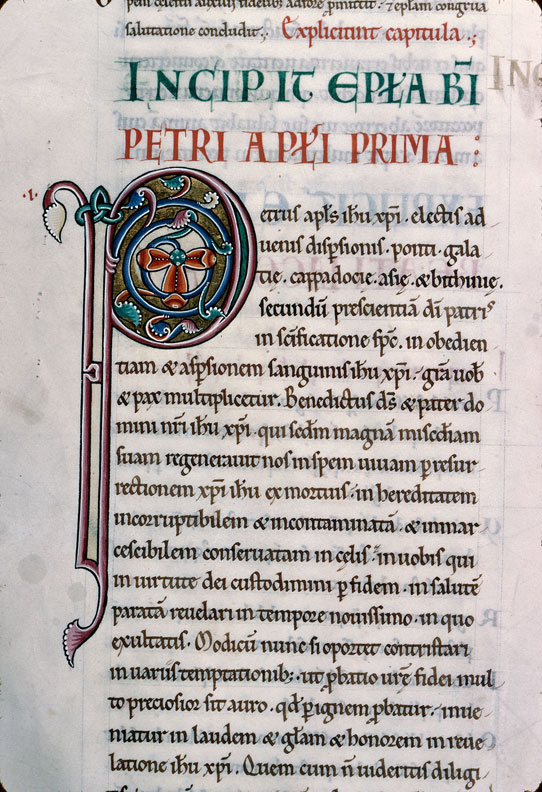 peni celerit auxilii fidelibus adfore permittit. & eplam congrua
salutatione concludit. Expliciunt capitula.
INCIPIT EPŁA BĪ
PETRI APŁI PRIMA :
·I· Petrus apłs ihu xp̄i. electis ad
uenis disp̄sionis. ponti. gala
tie. cappadocie. asię. & bithinię.
secundū prescientiā dī patris
in sc̄ificatione sp̄c. in obedien
tiam & asp̄sionem sanguinis ihu xp̄i. gr̄a uob̄
& pax multiplicetur. Benedictus ds̄ & pater do
mini nr̄i ihu xp̄i. qui sedm̄ magnā misc̄diam
suam regenerauit nos in spem uiuam p̄ resur
rectionem xp̄i ihu ex mortuis. in hereditatem
incorruptibilem & incontaminatā. & inmar
cescibilem conseruatam in cęlis. in uobis qui
in uirtute dei custodimini p̄ fidem. in salutē
paratā reuelari in tempore nouissimo. in quo
exultatis. Modicū nunc si oportet contristari
in uariis temptationib;. ut p̄batio urę̄ fidei mul
to preciosior sit auro. qd̄ p̄ ignem p̄batur. inue
niatur in laudem & głam & honorem in reue
latione ihu xp̄i. Quem cum n̄ uideritis diligi